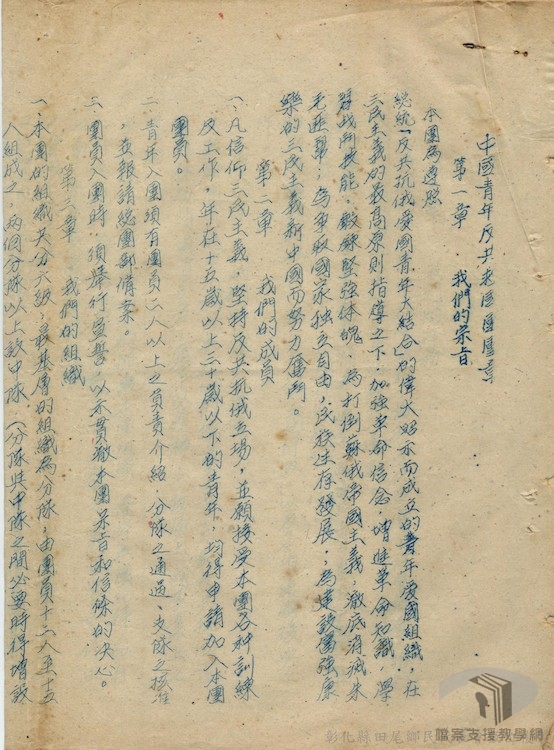 中國青年反共救國團團章
第一章　我們的宗旨
本團為遵照
總統「反共抗俄愛國青年大結合」的偉大昭示而成立的青年愛國組織，在
三民主義的最高原則指導之下，加強革命信念，增進革命知識，學
習戰鬥技能、鍛鍊堅強体魄，為打倒蘇俄帝國主義，澈底消滅朱
毛匪幫；為爭取國家独立自由，民族生存發展，為建設富強康
樂的三民主義新中國而努力奮鬥。
第二章　我們的成員
一、凡信仰三民主義，堅持反共抗俄立場，並願接受本團各种訓練
及工作，年在十五歲以上三十歲以下的青年，均得申請加入本團
團員。
二、青年入團須有團員二人以上之負責介紹，分隊之通過，支隊之核准
，並報請總團部備案。
三、團員入團時，須舉行宣誓，以示貫澈本團宗旨和信條的决心。
第三章　我們的組織
一、本團的組織共分六級，最基層的組織為分隊，由團員十二人至十五
人組成之，兩個分隊以上設中隊，（分隊與中隊之間必要時得增設
彰化縣田尾鄉民
檔案支援教學網